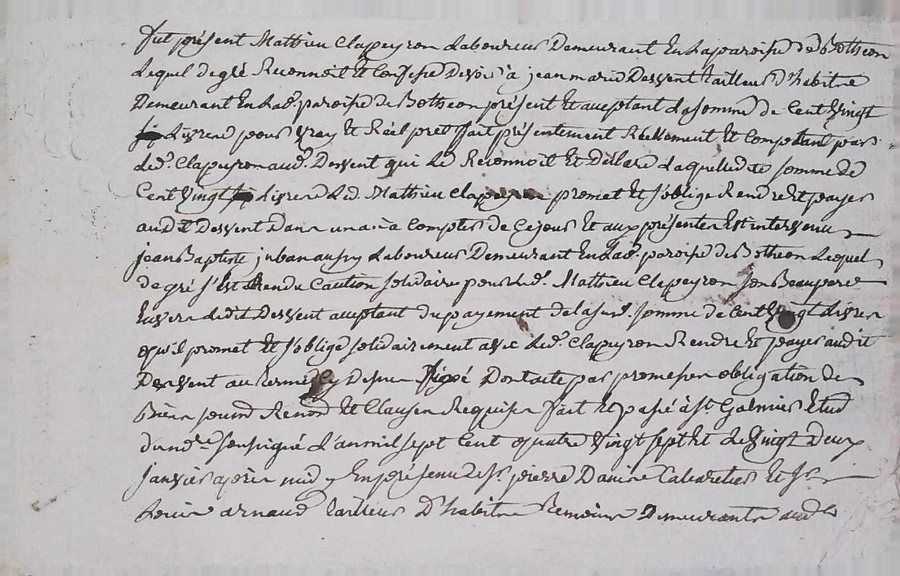 fut présent Mathieu Clapeyron Laboureur Demeurant En La paroisse de Botheon
Lequel de gré Reconnoit Et Confesse Devoir à jean marie Dessent tailleur D'habitne
Demeurant En Lad. paroisse de Botheon présent Et aceptant La somme de Cent Vingt
Livrene pour Vray Et Réel pret fait présentement Réellement Et Comptant par
led. Clapeyron aud. Dessent qui Led Reconnoit Et Déclare Laquelle de somme de
Cent Vingt Livrene Led. Mathieu Clapeyron promet Et s'oblige Rendre Et payer
audit Dessent Dans un an à Compter de Cejour Et aux présenter Est intervenu
jean Baptiste jubanaury Laboureur Demeurant En Lad. paroisse de Botheon Lequel
de gré s'Est Rendu Caution solidaire pour Led. Mathieu Clapeyron son Beaupere
Envers Ledit Dessent aceptant du payement de la sus d. somme de Cent Vingt Livrer
qu'il promet Et s'oblige solidairement avec led. Clapeyron Rendre Et payer audit
Dessent au terme Cy Dessus fixé Dont acte par promesser obligation de
Bien soumd Renond Et Clauser Requiser fait Et passé à st Galmier Etud
du nd.re soussigné L'an mil sept Cent quatre Vingt sept Et Le Vingt Deux
janvier après midy En présence de Sr. pierre Cabaretier Et Sr.
Louis arnaud tailleur D'habitne temoins Demeurants aud.